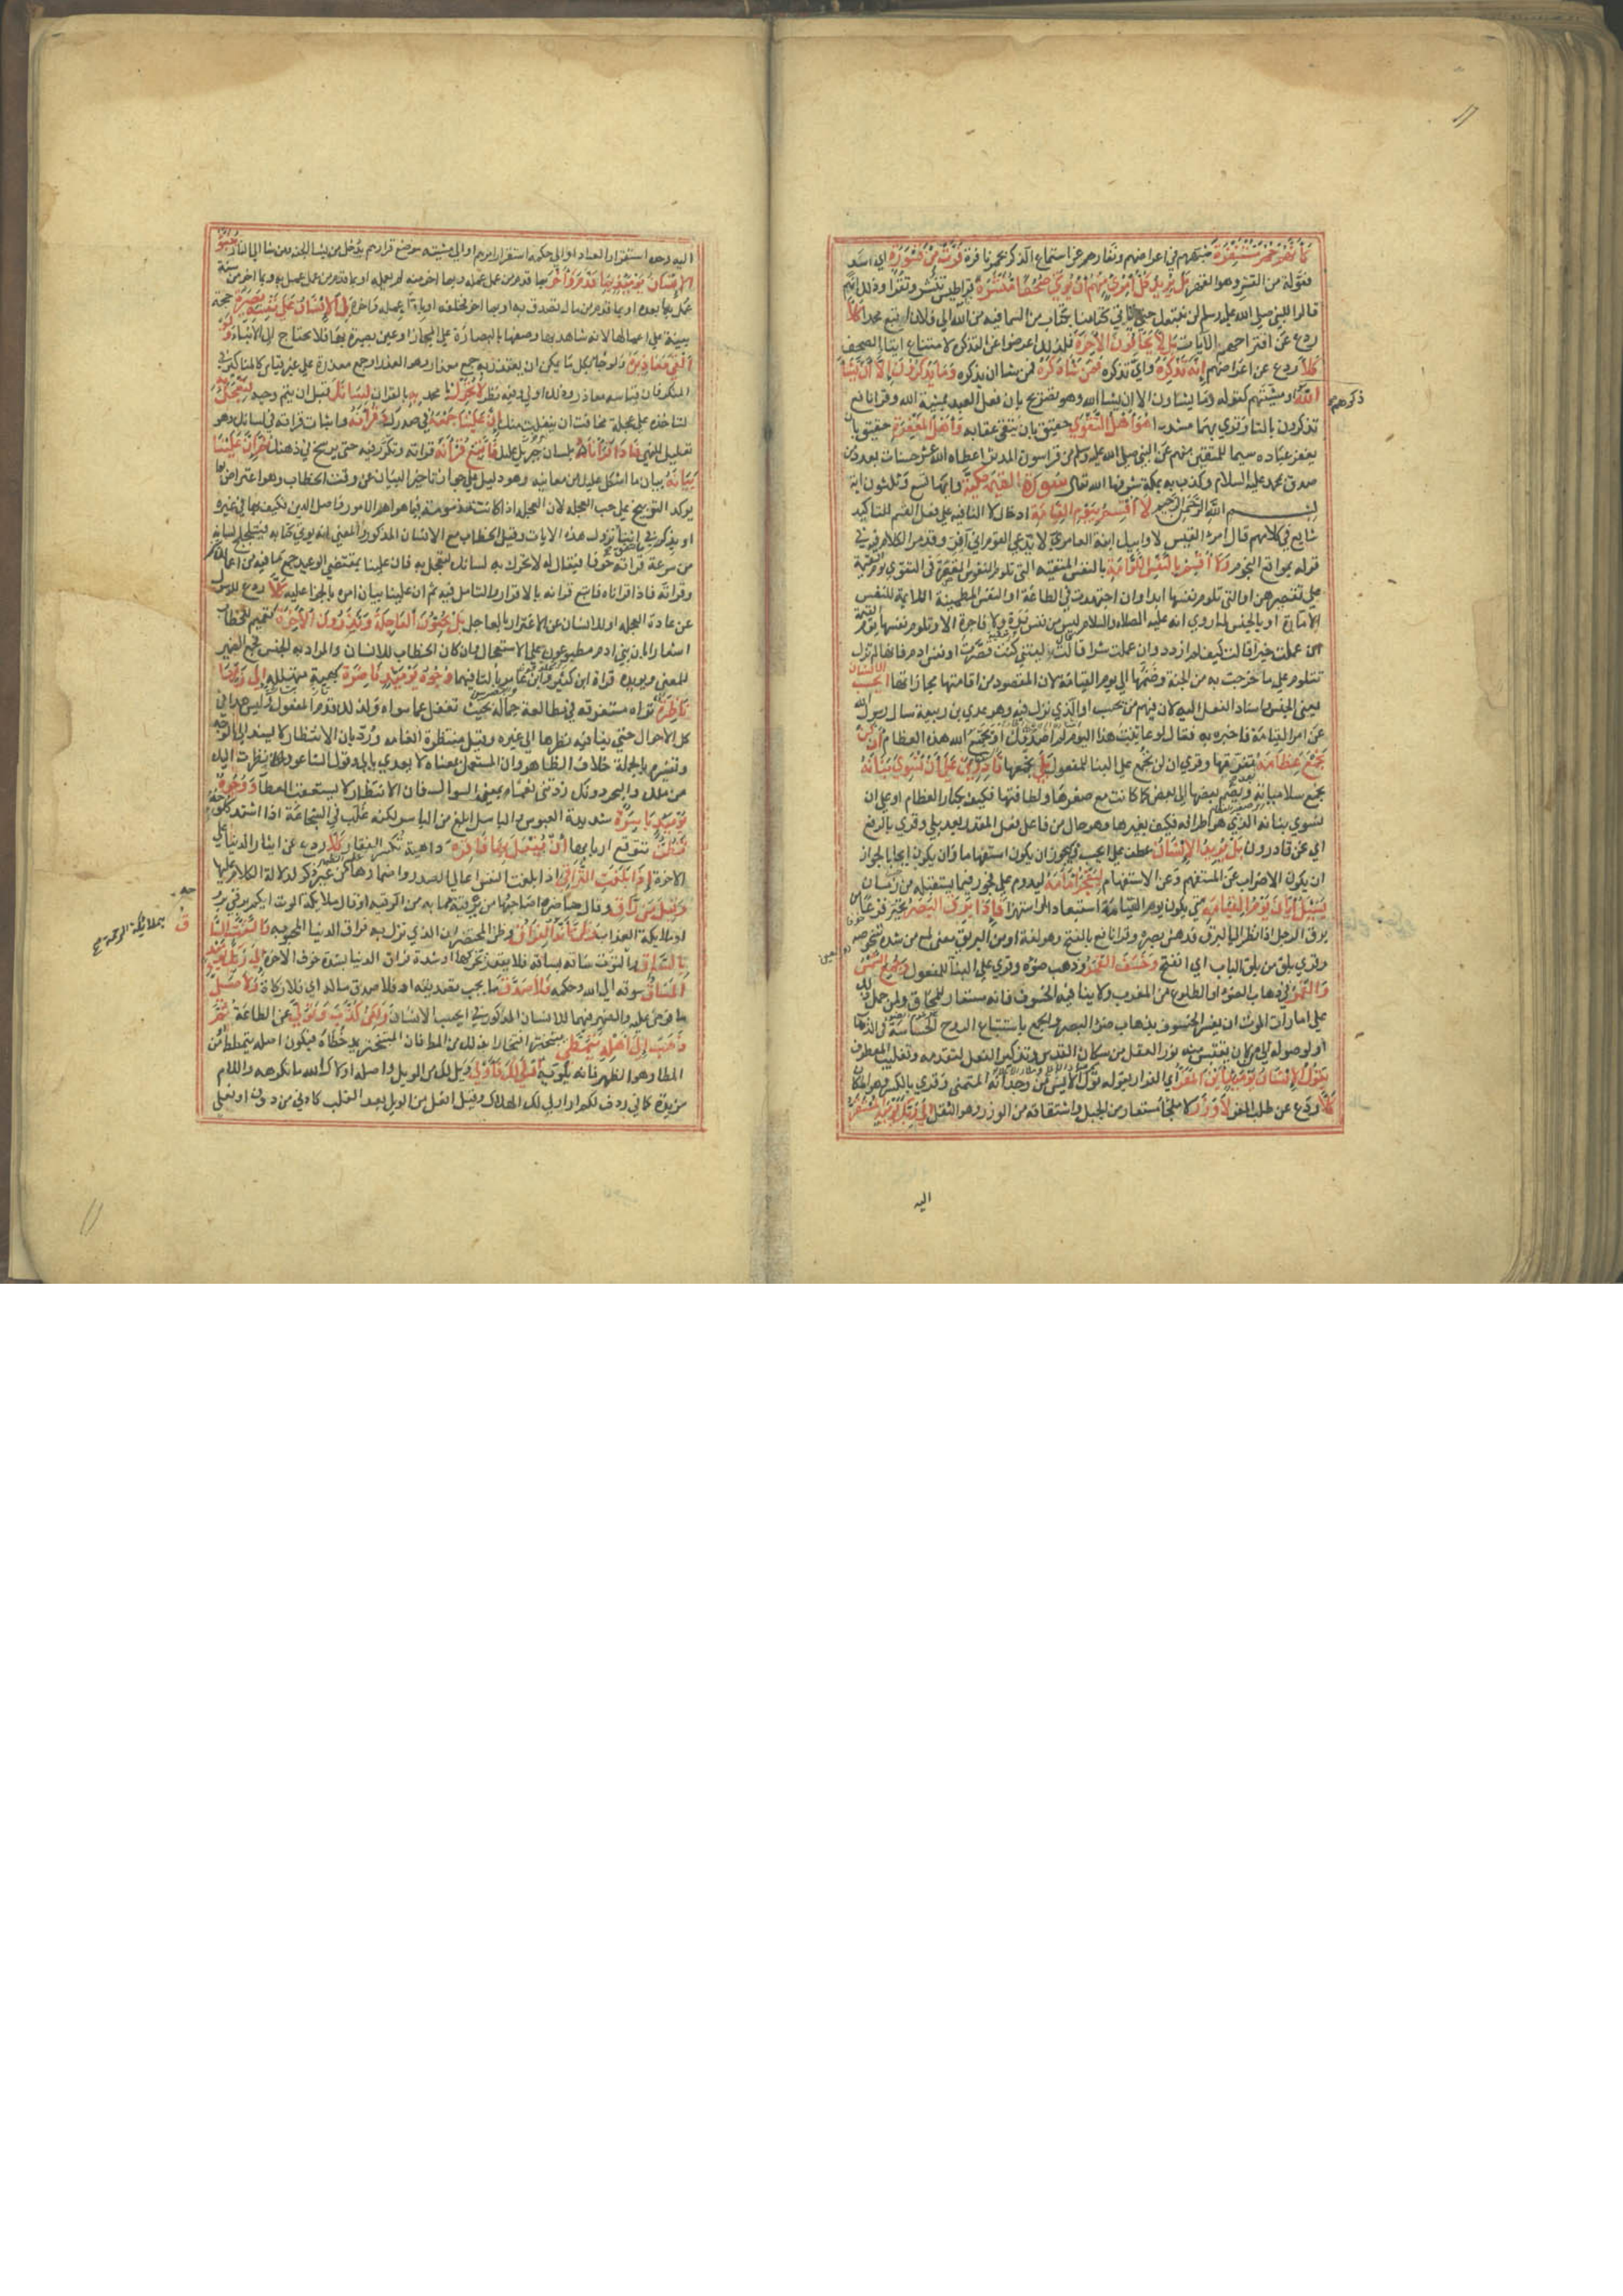 كَأَنَّهُمْ حُمُرٌ مُسْتَنْفِرَةٌ شبههم في اعراضهم ونفارهم عن استماع الذكر بحمر نافرة فَرَّتْ مِنْ قَسْوَرَةٍ اي اسد
فعولة من القسر وهو القهر بَلْ يُرِيدُ كُلُّ امْرِئٍ مِنْهُمْ أَنْ يُؤْتَى صُحُفًا مُنَشَّرَةً قراطيس تنشر وتقرا وذلك انهم
قالوا للنبي صلى الله عليه وسلم لن نتبعك حتى تاتي كلامنا بكتاب من السما فيه من الله الى فلان اتبع محمدا كَلَّا
ردع عن اقتراحهم الآيات بَلْ لَا يَخَافُونَ الْآخِرَةَ فلذلك اعرضوا عن التذكرة لا لامتناع ايتا الصحف
كَلَّا ردع عن اعراضهم إِنَّهُ تَذْكِرَةٌ واي تذكرة فَمَنْ شَاءَ ذَكَرَهُ فمن شا ان يذكره وَمَا يَذْكُرُونَ إِلَّا أَنْ يَشَاءَ
اللَّهُ او مشيتهم كقوله وما يشاون الا ان يشا الله وهو تصريح بان فعل العبد بمشية الله وقرا نافع
تذكرون بالتا وقري بهما مشددا هُوَ أَهْلُ التَّقْوَى حقيق بان يتقى عقابه وَأَهْلُ الْمَغْفِرَةِ حقيق بان
يغفر عباده سيما المتقين منهم عن النبي صلى الله عليه وسلم من قرا سورة المدثر اعطاه الله عشر حسنات بعدد من
صدق بمحمد عليه السلام وكذب به بمكة شرفها الله تعالى سورة القيمة مكية وايها تسع وثلثون اية
بسم الله الرحمن الرحيم لَا أُقْسِمُ بِيَوْمِ الْقِيَامَةِ ادخال لا النافية على فعل القسم للتاكيد
شايع في كلامهم قال امرء القيس لا وابيك ابنة العامري لا يدعي القوم اني آفر وقد مر الكلام فيه في
قوله بمواقع النجوم وَلَا أُقْسِمُ بِالنَّفْسِ اللَّوَّامَةِ بالنفس المتقية التي تلوم النفوس المقصرة في التقوي يوم القيمة
على تقصيرهن او التي تلوم نفسها ابدا وان اجتهدت في الطاعة او النفس المطمينة اللايمة للنفس
الامارة او بالجنس لما روي انه عليه الصلاة والسلام ليس من نفس برة ولا فاجرة الا وتلوم نفسها يوم القيمة
ان عملت خيرا قالت كيف لم ازدد وان عملت شرا قالت ليتني كنت قصرت او نفس ادم فانها لم تزل
تتلوم على ما خرجت به من الجنة وضمها الى يوم القيامة لان المقصود من اقامتها مجازاتها أَيَحْسَبُ الْإِنْسَانُ
يعني الجنس واسناد الفعل اليه لان فيهم من يحسب او الذي نزل فيه وهو عدي بن ربيعة سال رسول الله
عن امر القيامة فاخبره به فقال لو عاينت هذا اليوم لم اصدقك او يجمع الله هذه العظام أَلَّنْ
نَجْمَعَ عِظَامَهُ بعد تفرقها وقري ان لن تجمع على البنا للمفعول بَلَى نجمعها قَادِرِينَ عَلَى أَنْ نُسَوِّيَ بَنَانَهُ
بجمع سلامياته وضم بعضها الى بعض كما كانت مع صغرها ولطافتها فكيف بكبار العظام او على ان
نسوي بنانه الذي هو اطرافه فكيف بغيرها وهو حال من فاعل الفعل المقدر بعد بلى وقري بالرفع
اي نحن قادرون بَلْ يُرِيدُ الْإِنْسَانُ عطف على ايحسب فيجوز ان يكون استفهاما وان يكون ايجابا لجواز
ان يكون الاضراب عن المستفهم وعن الاستفهام لِيَفْجُرَ أَمَامَهُ ليدوم على فجوره فيما يستقبله من زمان
يَسْأَلُ أَيَّانَ يَوْمُ الْقِيَامَةِ متى يكون يوم القيامة استبعادا او استهزا فَإِذَا بَرِقَ الْبَصَرُ تحير فزعا من
برق الرجل اذا نظر الى البرق فدهش بصره وقرا نافع بالفتح وهو لغة او من البريق بمعنى لمع من شدة شخوصه
وقري بلق من بلق الباب اي انفتح وَخَسَفَ الْقَمَرُ وذهب ضوه وقري على البنا للمفعول وَجُمِعَ الشَّمْسُ
وَالْقَمَرُ في ذهاب الضوء او الطلوع من المغرب ولا ينافيه الخسوف فانه مستعار للمحاق ولمن حمل ذلك
على امارات الموت ان يفسر الخسوف بذهاب ضوء البصر والجمع باستتباع الروح الحاسة في الذهاب
او لوصوله الى من كان يقتبس منه نور العقل من سكان القدس وتذكير الفعل لتقدمه وتغليب المعطوف
يَقُولُ الْإِنْسَانُ يَوْمَئِذٍ أَيْنَ الْمَفَرُّ اي الفرار يقوله قول الايس من وجدانه المتمني وقري بالكسر وهو المكان
كَلَّا ردع عن طلب المفر لَا وَزَرَ لا ملجا مستعار من الجبل واشتقاقه من الوزر وهو الثقل إِلَى رَبِّكَ يَوْمَئِذٍ الْمُسْتَقَرُّ
ذكرهم
اليه
اليه وحده استقرار العباد او الى حكمه استقرار امرهم او الى مشيته موضع قرارهم يدخل من يشا الجنة ومن يشا النار يُنَبَّأُ
الْإِنْسَانُ يَوْمَئِذٍ بِمَا قَدَّمَ وَأَخَّرَ بما قدم من عمل عمله وبما اخر منه لم يعمله او بما قدم من عمل عمله وبما اخر من سنة
عمل بها بعده او بما قدم من مال تصدق به وبما اخر فخلفه او باول عمله واخره بَلِ الْإِنْسَانُ عَلَى نَفْسِهِ بَصِيرَةٌ حجة
بينة على اعمالها لانه شاهد بها وصفها بالبصارة على المجاز او عين بصيرة بها فلا يحتاج الى الانباء وَلَوْ
أَلْقَى مَعَاذِيرَهُ ولو جا بكل ما يمكن ان يعتذر به جمع معذار وهو العذر او جمع معذرة على غير قياس كالمناكير في
المنكر فان قياسه معاذر وذلك اولى وفيه نظر لَا تُحَرِّكْ يا محمد بِهِ بالقران لِسَانَكَ قبل ان يتم وحيه لِتَعْجَلَ بِهِ
لتاخذه على عجلة مخافة ان ينفلت منك إِنَّ عَلَيْنَا جَمْعَهُ في صدرك وَقُرْآنَهُ واثبات قراته في لسانك وهو
تعليل للنهي فَإِذَا قَرَأْنَاهُ بلسان جبريل عليك فَاتَّبِعْ قُرْآنَهُ قراته وتكرر فيه حتى يرسخ في ذهنك ثُمَّ إِنَّ عَلَيْنَا
بَيَانَهُ بيان ما اشكل عليك من معانيه وهو دليل على جواز تاخير البيان عن وقت الخطاب وهو اعتراض بما
يوكد التوبيخ على حب العجلة لان العجلة اذا كانت مذمومة فيما هو اهم الامور واصل الدين فكيف بها في غيره
او بذكر ما اتفق في اثنا نزول هذه الايات وقيل الخطاب مع الانسان المذكور والمعنى انه يوتى كتابه فيتلجلج لسانه
من سرعة قراته خوفا فيقال له لا تحرك به لسانك لتعجل به فان علينا بمقتضى الوعيد جمع ما فيه من اعمالك
وقراته فاذا قراناه فاتبع قرانه بالاقرار او التامل فيه ثم ان علينا بيان امره بالجزا عليه كَلَّا ردع للرسول
عن عادة العجلة او للانسان عن الاغترار بالعاجل بَلْ تُحِبُّونَ الْعَاجِلَةَ وَتَذَرُونَ الْآخِرَةَ تعميم للخطاب
اشعارا بان بني ادم مطبوعون على الاستعجال وان كان الخطاب للانسان والمراد به الجنس فجمع الضمير
للمعنى ويويده قراة ابن كثير وابن عامر باليا فيهما وُجُوهٌ يَوْمَئِذٍ نَاضِرَةٌ بهية متهللة إِلَى رَبِّهَا
نَاظِرَةٌ تراه مستغرقة في مطالعة جماله بحيث تغفل عما سواه ولذلك قدم المفعول وليس هذا في
كل الاحوال حتى ينافيه نظرها الى غيره وقيل منتظرة انعامه ورد بان الانتظار لا يسند الى الوجه
وتفسيره بالجملة خلاف الظاهر وان المستعمل بمعناه لا يعدى بالى وقول الشاعر واذا نظرت اليك
من ملك والبحر دونك زدتني نعما بمعنى السوال فان الانتظار لا يستعقب العطا وَوُجُوهٌ
يَوْمَئِذٍ بَاسِرَةٌ شديدة العبوس والباسل ابلغ من الباسر لكنه غلب في الشجاع اذا اشتد كلوحه
تَظُنُّ تتوقع اربابها أَنْ يُفْعَلَ بِهَا فَاقِرَةٌ داهية تكسر الفقار كَلَّا ردع عن ايثار الدنيا على
الاخرة إِذَا بَلَغَتِ التَّرَاقِيَ اذا بلغت النفس اعالي الصدر واضمارها من غير ذكر لدلالة الكلام عليها
وَقِيلَ مَنْ رَاقٍ وقال حاضروا صاحبها من يرقيه مما به من الرقية او قال ملايكة الموت ايكم يرقى بروحه
او ملايكة العذاب وَظَنَّ أَنَّهُ الْفِرَاقُ وظن المحتضر ان الذي نزل به فراق الدنيا المحبوبة وَالْتَفَّتِ السَّاقُ
بِالسَّاقِ والتوت ساقه بساقه فلا يقدر تحريكها او شدة فراق الدنيا بشدة خوف الاخرة إِلَى رَبِّكَ يَوْمَئِذٍ
الْمَسَاقُ سوقه الى الله وحكمه فَلَا صَدَّقَ ما يجب تصديقه او فلا صدق ماله اي فلا زكاه وَلَا صَلَّى
ما فرض عليه والضمير فيهما للانسان المذكور في ايحسب الانسان وَلَكِنْ كَذَّبَ وَتَوَلَّى عن الطاعة ثُمَّ
ذَهَبَ إِلَى أَهْلِهِ يَتَمَطَّى يتبختر افتخارا بذلك من المط فان المتبختر يمد خطاه فيكون اصله يتمطط او من
المطا وهو الظهر فانه يلويه أَوْلَى لَكَ فَأَوْلَى ويل لك من الويل واصله اولاك الله ما تكرهه واللام
مزيدة كما في ردف لكم او اولى لك الهلاك وقيل افعل من الويل بعد القلب كادنى من دون او فعلى
بملايكة الرحمة